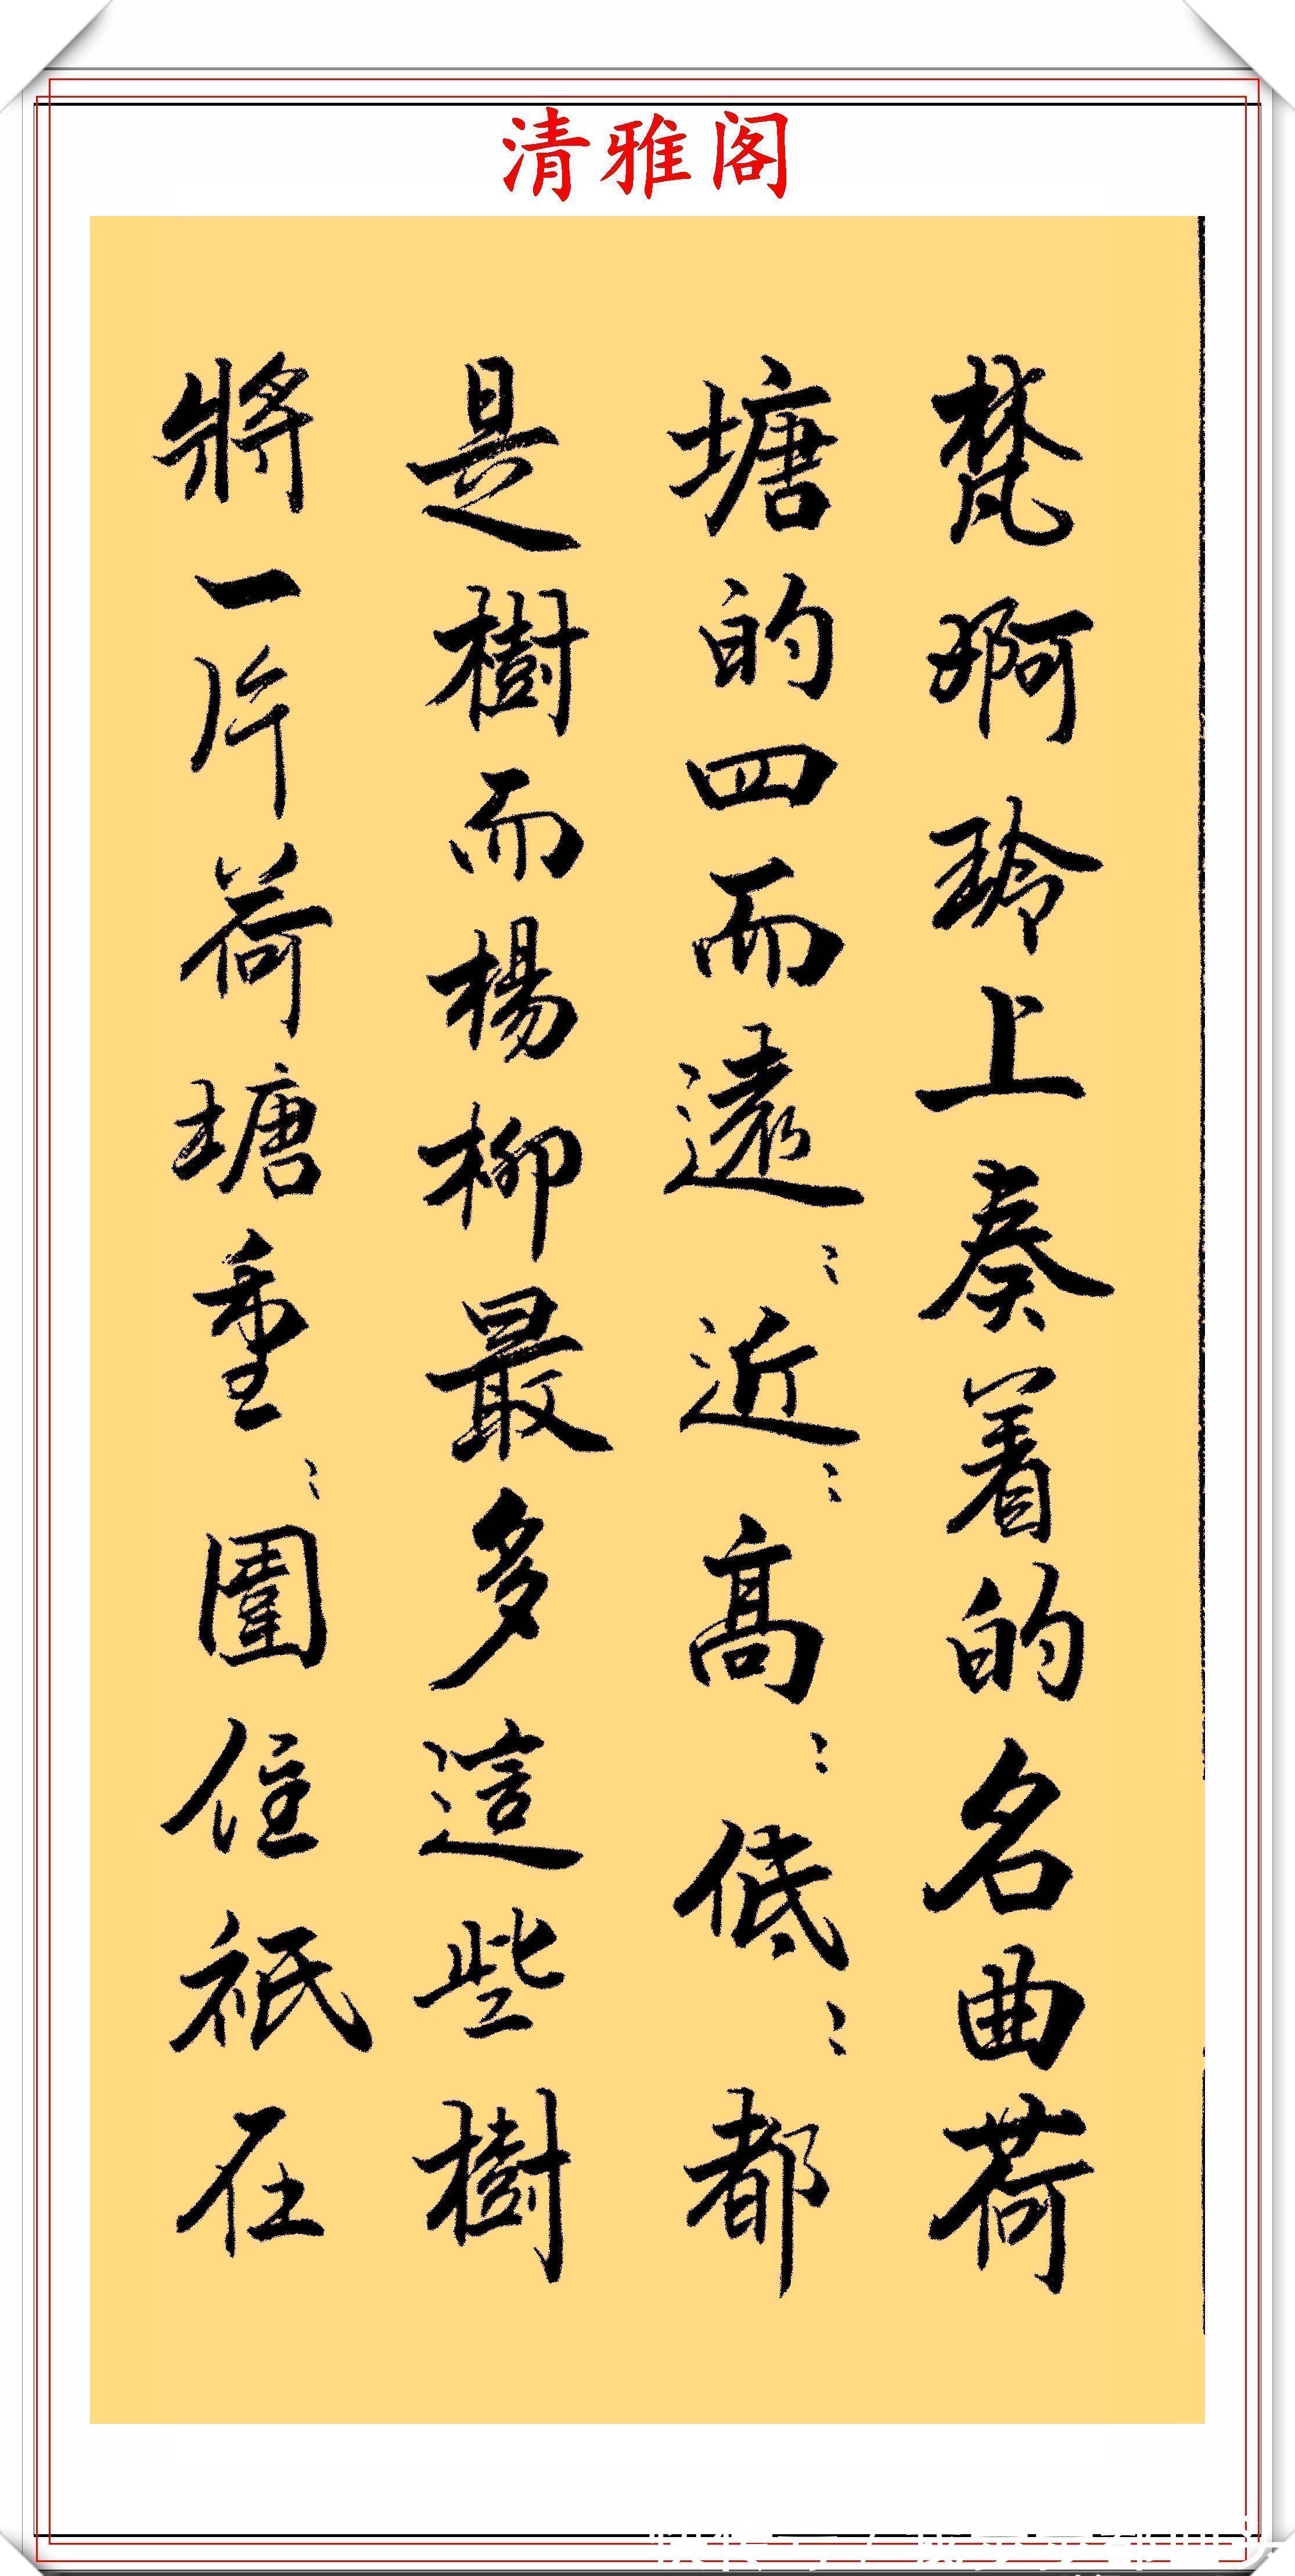 清雅阁
梵啊玲上奏着的名曲荷
塘的四面遠〻近〻高〻低〻都
是樹而楊柳最多這些樹
將一片荷塘重〻圍住衹在